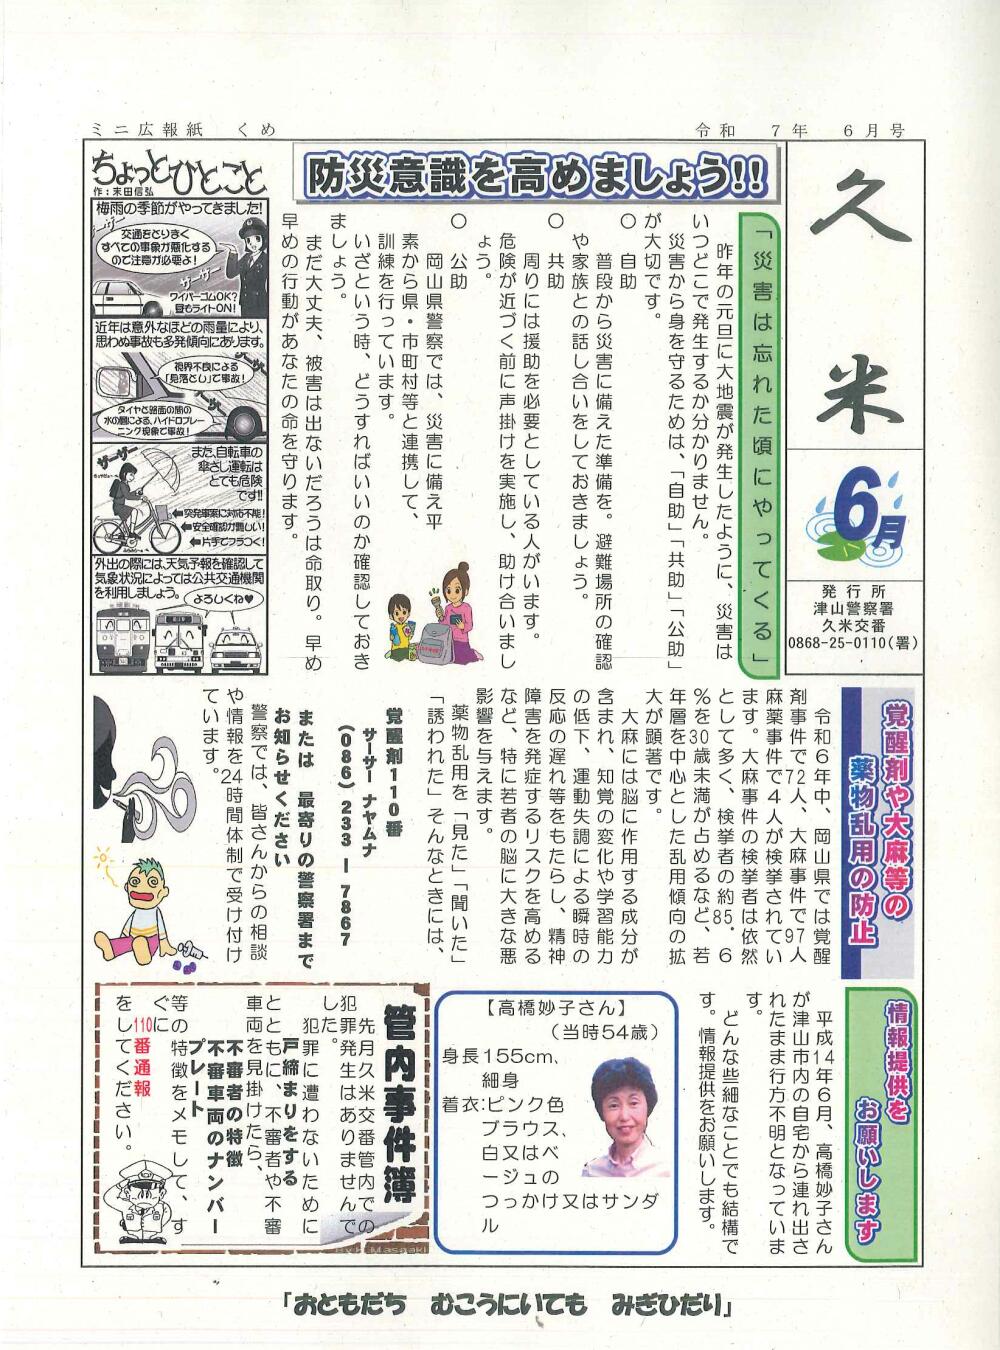 ミニ広報紙　くめ
令和　7年　6月号
久米
6月
発行所
津山警察署
久米交番
0868-25-0110(署)
防災意識を高めましょう!!
「災害は忘れた頃にやってくる」
昨年の元旦に大地震が発生したように、災害は
いつどこで発生するか分かりません。
災害から身を守るためは、「自助」「共助」「公助」
が大切です。
○　自助
普段から災害に備えた準備を。避難場所の確認
や家族との話し合いをしておきましょう。
○　共助
周りには援助を必要としている人がいます。
危険が近づく前に声掛けを実施し、助け合いまし
ょう。
○　公助
岡山県警察では、災害に備え平
素から県・市町村等と連携して、
訓練を行っています。
いざという時、どうすればいいのか確認しておき
ましょう。
まだ大丈夫、被害は出ないだろうは命取り。早め
早めの行動があなたの命を守ります。
ちょっとひとこと
作：末田信弘
梅雨の季節がやってきました!
ザーザー
交通をとりまく
すべての事象が悪化する
ので注意が必要よ!
ザーサー
ワイパーゴムOK?
昼もライトON!
近年は意外なほどの雨量により、
思わぬ事故も多発傾向にあります。
視界不良による
「見落とし」で事故!
タイヤと路面の間の
水の膜による、ハイドロプレー
ニング現象で事故!
また、自転車の
傘さし運転は
とても危険
です!!
ザーザー
突発事案に対応不能!
安全確認が難しい!
片手でフラつく!
外出の際には、天気予報を確認して
気象状況によっては公共交通機関
を利用しましょう。
よろしくね♥
覚醒剤や大麻等の
薬物乱用の防止
令和6年中、岡山県では覚醒
剤事件で72人、大麻事件で97人
麻薬事件で4人が検挙されてい
ます。大麻事件の検挙者は依然
として多く、検挙者の約85.6
%を30歳未満が占めるなど、若
年層を中心とした乱用傾向の拡
大が顕著です。
大麻には脳に作用する成分が
含まれ、知覚の変化や学習能力
の低下、運動失調による瞬時の
反応の遅れ等をもたらし、精神
障害を発症するリスクを高める
など、特に若者の脳に大きな悪
影響を与えます。
薬物乱用を「見た」「聞いた」
「誘われた」そんなときには、
覚醒剤110番
サーサー ナヤムナ
(086) 233ー7867
または　最寄りの警察署まで
お知らせください
警察では、皆さんからの相談
や情報を24時間体制で受け付け
ています。
情報提供を
お願いします
平成14年6月、高橋妙子さん
が津山市内の自宅から連れ出さ
れたまま行方不明となっていま
す。
どんな些細なことでも結構で
す。情報提供をお願いします。
【高橋妙子さん】
(当時54歳)
身長155cm、
細身
着衣:ピンク色
ブラウス、
白又はベ
ージュの
つっかけ又はサンダ
ル
管内事件簿
先月久米交番管内での
犯罪発生はありませんで
した。
犯罪に遭わないために
戸締まりをする
とともに、不審者や不審
車両を見掛けたら、
不審者の特徴
不審車両のナンバー
プレート
等の特徴をメモして、す
ぐに
110番通報
をしてください。
「おともだち　むこうにいても　みぎひだり」